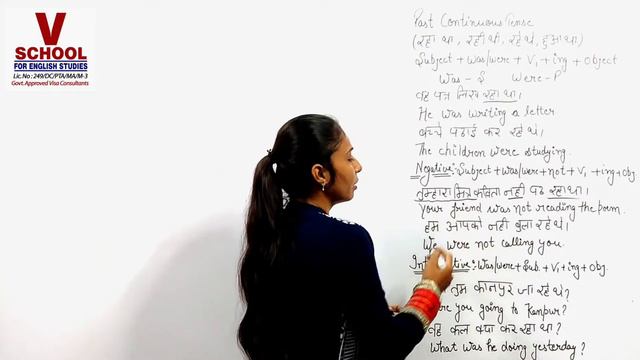 V
SCHOOL
FOR ENGLISH STUDIES
Lic. No : 249/DC/PTA/MA/M-3
Govt. Approved Visa Consultants
Past Continuous Tense
(रहा था, रही थी, रहे थे, हुआ था)
Subject + was/were + V₁ + ing + object
Was - S Were - P
वह पत्र लिख रहा था।
He was writing a letter
बच्चे पढाई कर रहे थे।
The children were studying.
Negative: Subject + was/were + not + V₁ + ing + obj.
तुम्हारा मित्र कविता नही पढ रहा था।
Your friend was not reading the poem.
हम आपको नही बुला रहे थे।
We were not calling you.
: Was/were + Sub. + V₁ + ing + obj.
तुम कानपुर जा रहे थे?
you going to Kanpur?
वह कल क्या कर रहा था?
What was he doing yesterday?